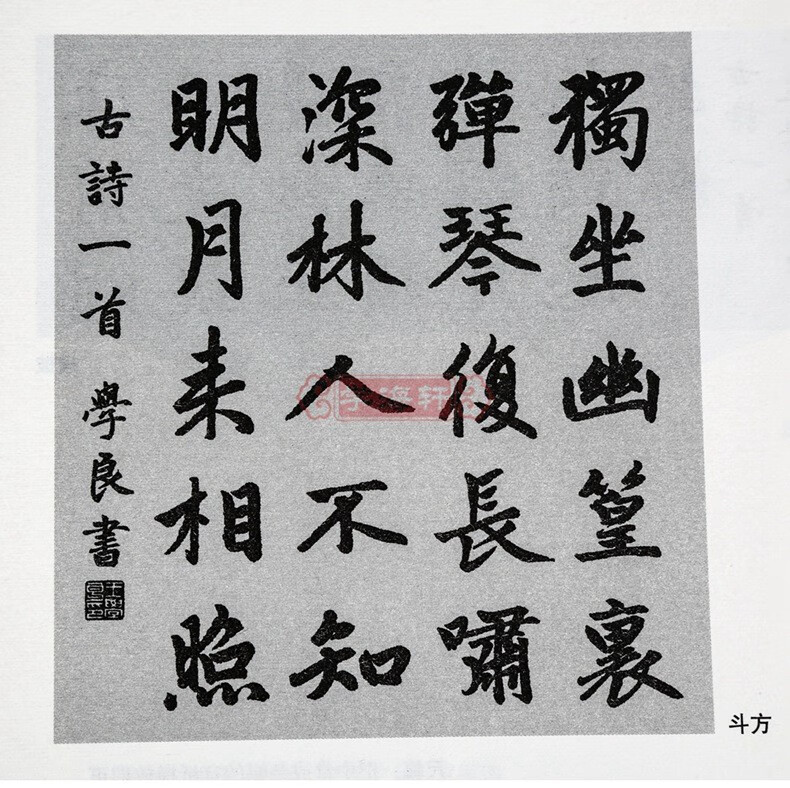 獨坐幽篁裏
彈琴復長嘯
深林人不知
明月来相照
古詩一首 學良書
斗方